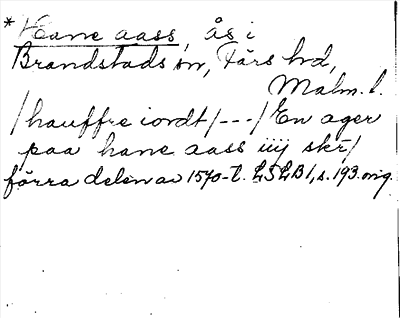 * Hane aass, ås i
Brandstads sn, Färs hd,
Malm. l.
/hauffre iordt/---/En ager
paa hane aass iiij skr̄/
förra delen av 1570-t. LSLB 1, s. 193. orig.